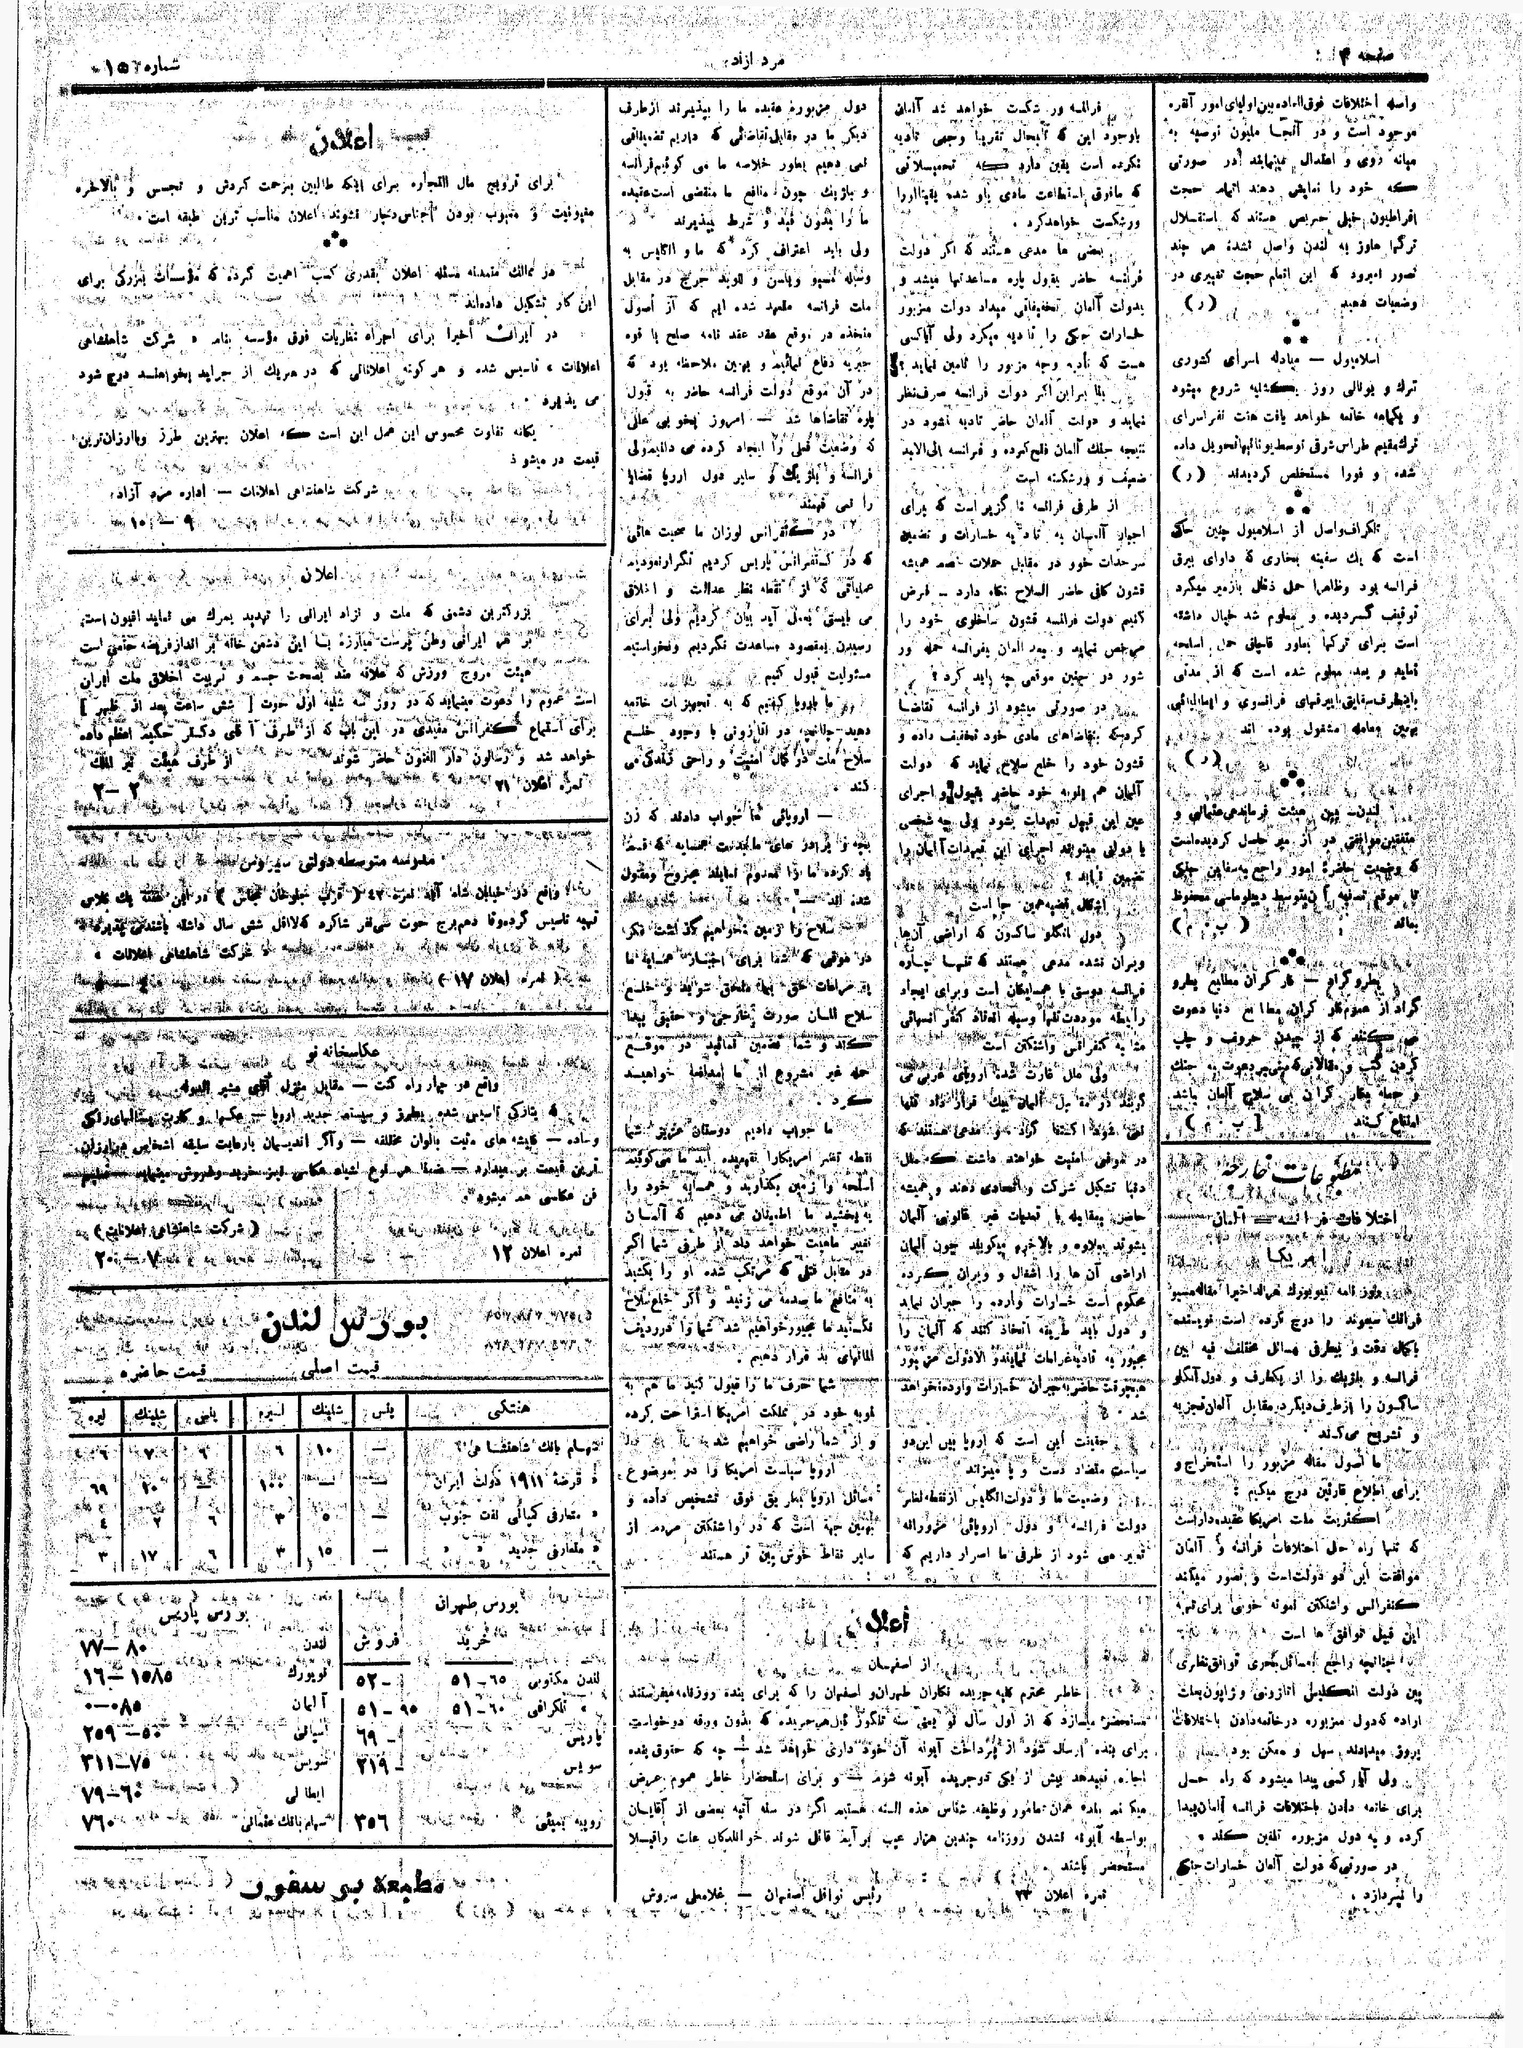 صفحه ۴
مرد آزاد
شماره ۱۵
واسطه اختلافات فوق‌العاده بین اولیای امور آنقره
موجود است و در آنجا ملیون توصیه به
میانه روی و اعتدال مینمایند در صورتی
که خود را نمایش دهند اتمام حجت
افراطیون خیلی حریص هستند که استقلال
ترکها هنوز به لندن واصل نشده هر چند
تصور نمیرود که این اتمام حجت تغییری در
وضعیات دهد (ر)
اسلامبول — مبادله اسرای کشوری
ترک و یونانی روز یکشنبه شروع میشود
و یکماهه خاتمه خواهد یافت هشت نفر اسرای
ترک مقیم طراس شرقی توسط یونانیها تحویل داده
شده و فورا مستخلص گردیدند (ر)
تلگراف واصل از اسلامبول چنین حاکی
است که یک سفینه بخاری که دارای بیرق
فرانسه بود و ظاهرا حمل ذغال بازمیر میکرد
توقیف گردیده و معلوم شد خیال داشته
است برای ترکها بطور قاچاق حمل اسلحه
نماید و بعد معلوم شده است که از مدتی
باینطرف سفاین بابیرقهای فرانسوی و ایطالیائی
بهمین معامله مشغول بوده اند (ر)
لندن — بین هیئت فرماندهی عثمانی و
متفقین موافقتی در ازمیر حاصل گردیده است
که وضعیت حاضره امور راجع به سفاین جنگی
تا موقع تصفیه آن بتوسط دیپلوماسی محفوظ
بماند ( ب . م )
پطروگراد — کارگران مطابع پطرو
گراد از عموم کارگران مطابع دنیا دعوت
می کنند که از چیدن حروف و چاپ
کردن کتب و مقالاتی که مبنی بر دعوت به جنگ
و حمله بکارگران بی سلاح آلمان باشد
امتناع کنند [ ب . م )
مطبوعات خارجه
اختلافات فرانسه — آلمان
امریکا
روزنامه نیویورک هرالد اخیرا مقاله مسیو
فرانک سیموند را درج کرده است نویسنده
باکمال دقت و بیطرفی مسائل مختلف فیه بین
فرانسه و بلژیک را از یکطرف و دول آنگلو
ساکسون را از طرف دیگر در مقابل آلمان تجزیه
و تشریح میکند
ما اصول مقاله مزبور را استخراج و
برای اطلاع قارئین درج میکنیم :
اکثریت ملت امریکا عقیده دار است
که تنها راه حل اختلافات فرانسه و آلمان
موافقت این دو دولت است و تصور میکند
کنفرانس واشنگتن نمونه خوبی برای تهیه
این قبیل توافق ها است
چنانچه راجع بمسائل بحری توافق نظری
بین دولت انگلیس اتازونی و ژاپون بعلت
اراده که دول مزبوره در خاتمه دادن باختلافات
بروز میدادند سهل و ممکن بود
ولی آیا کسی پیدا میشود که راه حل
برای خاتمه دادن باختلافات فرانسه آلمان پیدا
کرده و به دول مزبوره تلقین کند ؟
در صورتی که دولت آلمان خسارات جنگ
را نپردازد ،
فرانسه ور شکست خواهد شد آلمان
باوجود این که تابحال تقریبا وجهی تادیه
نکرده است یقین دارد که تحمیلاتی
که مافوق استطاعت مادی باو شده یقینا او را
ورشکست خواهد کرد .
بعضی ها مدعی هستند که اگر دولت
فرانسه حاضر بقبول پاره مساعدتها میشد و
بدولت آلمان تخفیفاتی میداد دولت مزبور
خسارات جنگی را تادیه میکرد ولی آیا کسی
هست که تادیه وجه مزبور را تامین نماید ؟
بنا براین اگر دولت فرانسه صرف نظر
نماید و دولت آلمان حاضر تادیه نشود در
نتیجه جنگ آلمان فتح کرده و فرانسه الی الابد
ضعیف و ورشکسته است
از طرفی فرانسه ناگزیر است که برای
اجبار آلمان به تادیه خسارات و تضمین
سرحدات خود در مقابل حملات همیشه
قشون کافی حاضر السلاح نگاه دارد — فرض
کنیم دولت فرانسه قشون ساخلوی خود را
مرخص نماید و بعد آلمان بفرانسه حمله ور
شود در چنین موقعی چه باید کرد ؟
در صورتی میشود از فرانسه تقاضا
کرد که بتقاضاهای مادی خود تخفیف داده و
قشون خود را خلع سلاح نماید که دولت
آلمان هم بنوبه خود حاضر بقبول و اجرای
عین این قبیل تعهدات بشود ولی چه شخص
یا دولتی میتواند اجرای این تعهدات آلمان را
تضمین نماید ؟
اشکال قضیه همین جا است
دول انگلو ساکسون که اراضی آن‌ها
ویران نشده مدعی هستند که تنها چاره
فرانسه دوستی با همسایگان است و برای ایجاد
رابطه مودت تنها وسیله انعقاد کنفرانسهائی
مشابه کنفرانس واشنگتن است
ولی ملل غارت شده اروپای غربی می
گویند در مقابل آلمان بیک قرارداد تنها
نمی شود اکتفا کرد و مدعی هستند که
در موقعی امنیت خواهند داشت که ملل
دنیا تشکیل شرکت و اتحادی دهند و همیشه
حاضر بمقابله با تعدیات غیر قانونی آلمان
بشوند بعلاوه و بالاخره میگویند چون آلمان
اراضی آن ها را اشغال و ویران کرده
محکوم است خسارات وارده را جبران نماید
و دول باید طریقه اتخاذ کنند که آلمان را
مجبور به تادیه غرامات نمایند و الا دولت مزبور
هیچوقت حاضر به جبران خسارات وارده نخواهد
شد
حقیقت این است که اروپا بین این دو
سیاست متضاد دست و پا میزند
وضعیت ما و دولت انگلیس از نقطه نظر
دولت فرانسه و دول اروپائی مزورانه
تعبیر می شود از طرفی ما اصرار داریم که
دول مزبوره عقیده ما را بپذیرند از طرف
دیگر ما در مقابل تقاضائی که داریم تضمیناتی
نمی دهیم بطور خلاصه ما می گوئیم فرانسه
و بلژیک چون منافع ما مقتضی است عقیده
ما را بدون قید و شرط بپذیرند
ولی باید اعتراف کرد که ما و انگلیس به
وسیله مسیو ویلسن و لوید جرج در مقابل
ملت فرانسه متعهد شده ایم که از اصول
متخذه در موقع عقد عهد نامه صلح با قوه
جبریه دفاع نمائیم و بهمین ملاحظه بود که
در آن موقع دولت فرانسه حاضر به قبول
پاره تقاضاها شد — امروز بخوبی عللی
که وضعیت فعلی را ایجاد کرده می دانیم ولی
فرانسه و بلژیک و سایر دول اروپا قضایا
را نمی فهمند
در کنفرانس لوزان ما صحبت هائی
که در کنفرانس پاریس کردیم تکرار نمودیم
عملیاتی که از نقطه نظر عدالت و اخلاق
می بایستی بعمل آید بیان کردیم ولی برای
رسیدن بمقصود مساعدت نکردیم و نخواستیم
مسئولیت قبول کنیم
ما باروپا گفتیم که به تجهیزات خاتمه
دهید چنانچه در اتازونی با وجود خلع
سلاح ملت در کمال امنیت و راحتی زندگی می
کند .
— اروپائی ها جواب دادند که زن
بچه و پدر های ما بدست همسایه که قصد
یاد کرده ما را معدوم نماید مجروح و مقتول
شده اند —
سلاح را زمین نخواهیم گذاشت مگر
در موقعی که شما برای اجبار همسایه ما
به مراعات حق بما ملحق شوید و خلع
سلاح آلمان صورت خارجی و حقیقی پیدا
کند و شما تضمین نمائید در موقع
حمله غیر مشروع از ما مدافعه خواهید
کرد .
ما جواب دادیم دوستان عزیز شما
نقطه نظر امریکا را نفهمیده اید ما می گوئیم
اسلحه را زمین بگذارید و همسایه خود را
به بخشید ما اطمینان می دهیم که آلمان
تغییر ماهیت خواهد داد از طرفی شما اگر
در مقابل قتلی که مرتکب شده او را بکشید
به منافع ما صدمه می زنید و اگر خلع سلاح
نکنید ما مجبور خواهیم شد شما را در ردیف
آلمانهای بد قرار دهیم .
شما حرف ما را قبول کنید ما هم به
نوبه خود در مملکت امریکا استراحت کرده
و از شما راضی خواهیم شد
اروپا سیاست امریکا را در موضوع
مسائل اروپا بطریق فوق تشخیص داده و
بهمین جهة است که در واشنگتن مردم از
سایر نقاط خوش بین تر هستند
اعلان
از اصفهان
خاطر محترم کلیه جریده نگاران طهران و اصفهان را که برای بنده روزنامه میفرستند
مستحضر میسازد که از اول سال نو یعنی سنه تنگوزئیل هر جریده که بدون ورقه درخواست
برای بنده ارسال شود از پرداخت آبونه آن خود داری خواهد شد — چه که حقوق بنده
اجازه نمیدهد بیش از یکی دو جریده آبونه شوم — و برای استحضار خاطر عموم عرض
میکنم بنده همان مامور وظیفه شناس هذه السنه هستم اگر در سنه آتیه بعضی از آقایان
بواسطه آبونه نشدن روزنامه چندین هزار عیب برایم قائل شوند خوانندگان علت را قبلا
مستحضر باشند .
نمره اعلان ۲۳
رئیس نواقل اصفهان — غلامعلی سروش
اعلان
برای ترویج مال التجاره برای اینکه طالبین بزحمت گردش و تجسس و بالاخره
مأیوسیت و معیوب بودن اجناس دچار نشوند اعلان مناسب ترین طبقه است
در ممالک متمدنه مسئله اعلان بقدری کسب اهمیت کرده که مؤسسات بزرگی برای
این کار تشکیل داده‌اند
در ایران اخیرا برای اجراء نظریات فوق مؤسسه بنام « شرکت شاهنشاهی
اعلانات » تاسیس شده و هر گونه اعلاناتی که در هر یک از جراید بخواهند درج شود
می پذیرد .
یگانه تفاوت محسوس این عمل این است که اعلان بهترین طرز و باارزان‌ترین
قیمت در میشود
شرکت شاهنشاهی اعلانات — اداره مرد آزاد
۹ — ۱۰
اعلان
بزرگترین دشمنی که ملت و نژاد ایرانی را تهدید بمرگ می نماید افیون است.
بر هر ایرانی وطن پرست مبارزه با این دشمن خانه بر انداز فریضه حتمی است
هیئت مروج ورزش که علاقه مند بصحت جسم و تربیت اخلاق ملت ایران
است عموم را دعوت مینماید که در روز سه شنبه اول حوت [ شش ساعت بعد از ظهر ]
برای استماع کنفرانس مفیدی در این باب که از طرف آقای دکتر حکیم اعظم داده
خواهد شد در سالون دار الفنون حاضر شوند از طرف هیئت نیر الملک
نمره اعلان ۲۱ ۲ — ۲
مدرسه متوسطه دولتی سیروس
واقع در خیابان شاه آباد نمره ۴۷ ( قرب جلوخان مجلس ) در این هفته یک کلاس
تهیه تاسیس کرده و تا دهم برج حوت سی نفر شاگرد که لااقل شش سال داشته باشند می پذیرد .
« شرکت شاهنشاهی اعلانات »
( نمره اعلان ۱۷ )
عکاسخانه نو
واقع در چهار راه کنت — مقابل منزل آقای مشیر الدوله
که بتازگی تاسیس شده بطرز و سیستم جدید اروپا — عکسها و کارت پستالهای رنگی
و ساده — کلیشه های مثبت بالوان مختلفه — و اگراندیسمان بارعایت سابقه اشخاص بارزان
ترین قیمت بر میدارد — ضمنا هر نوع اشیاء عکاسی نیز خرید و فروش مینماید — تعلیم
فن عکاسی هم میشود .
( شرکت شاهنشاهی اعلانات )
نمره اعلان ۱۲ ۷ — ۲۰
بورس لندن
قیمت اصلی قیمت حاضره
هفتگی پنس شلینک لیره پنس شلینک لیره
سهام بانک شاهنشاهی — ۱۰ ۶ ۶ ۷ ۶
« قرضهٔ ۱۹۱۱ دولت ایران — — ۱۰۰ — ۱۰ ۶۹
« متعارفی کمپانی نفت جنوب — ۵ ۳ ۶ ۲ ۴
« متعارفی جدید « « — ۱۵ ۳ ۶ ۱۷ ۳
بورس طهران
خرید فروش
لندن مکتوبی ۶۵ - ۵۱ - ۵۲
« تلگرافی ۶۰ - ۵۱ ۹۵ - ۵۱
پاریس - ۶۹
سویس - ۲۱۹
روپیه بمبئی ۳۵۶
بورس پاریس
لندن ۸۰ — ۷۷
نویورک ۱۵۸۵ — ۱۶
آلمان ۰۸۵ — ۰
اسپانی ۵۰ — ۲۵۹
سویس ۷۵ — ۳۱۱
ایطالی ۶۰ — ۷۹
سهام بانک عثمانی ۷۶۰
مطبعه بوسفور